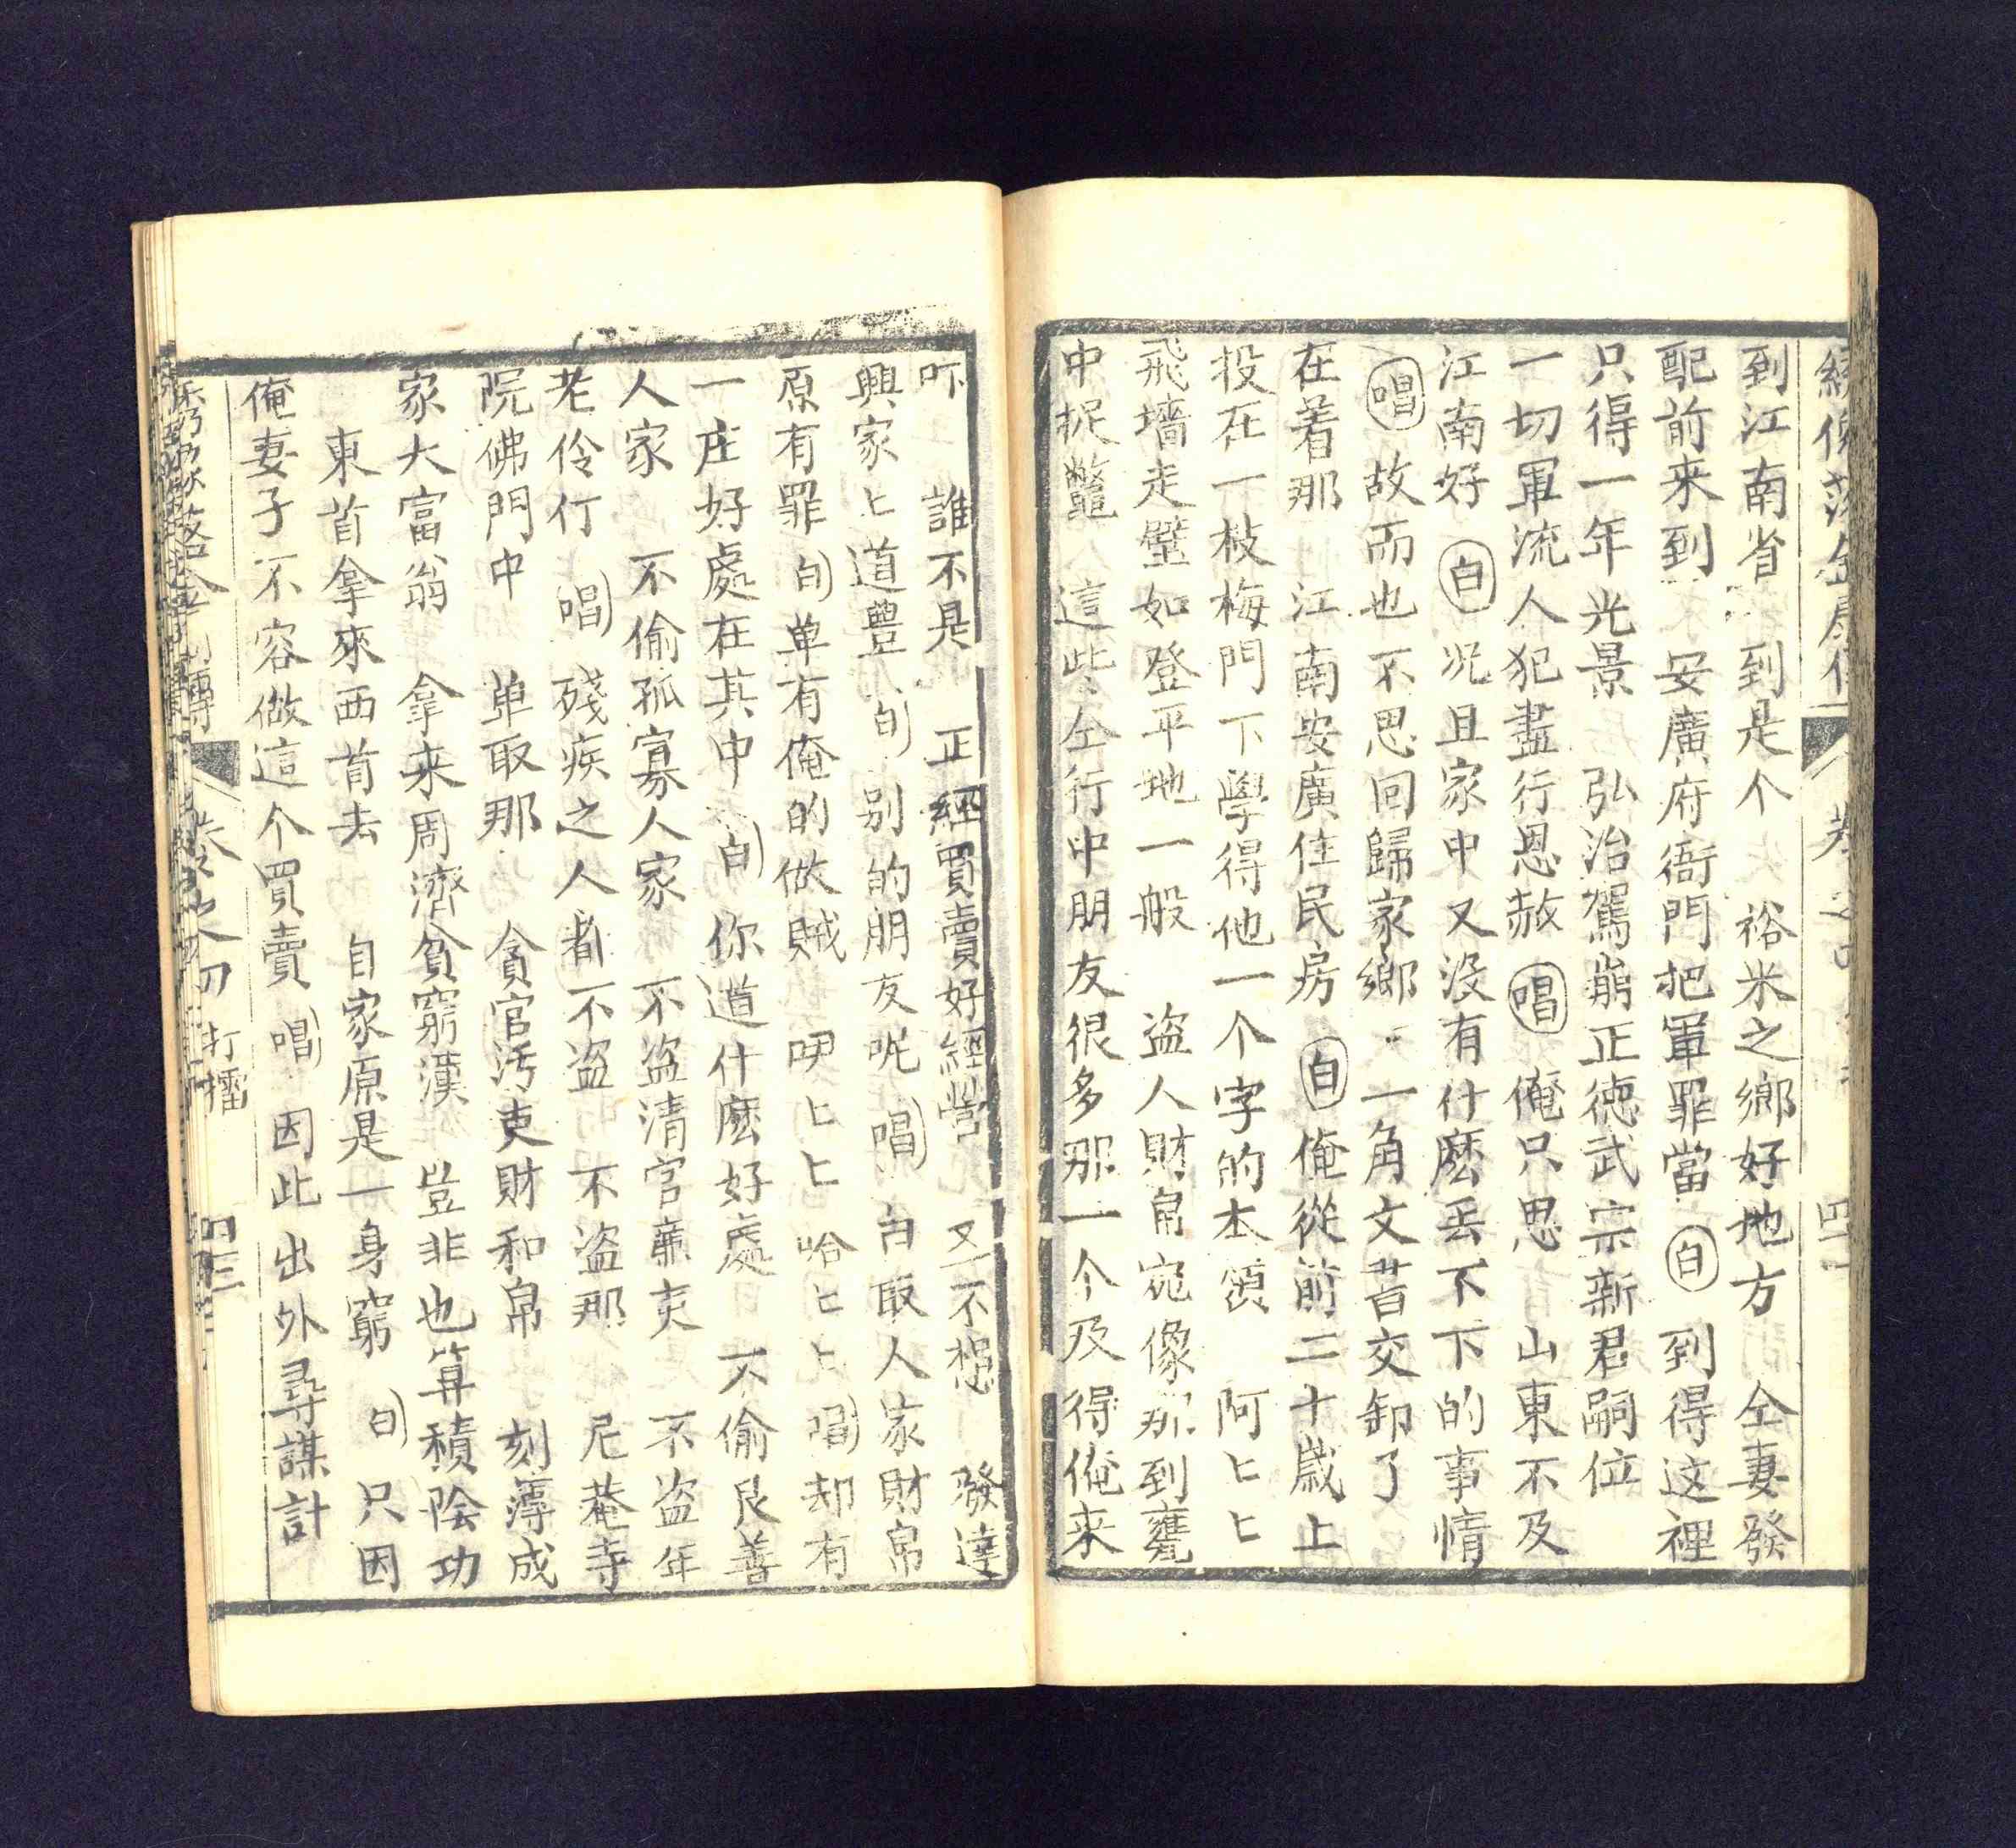 到江南省　到是个　裕米之鄉好地方　仝妻發
配前来到　安廣府衙門把軍罪當　白　到得这裡
只得一年光景　弘治駕崩正德武宗新君嗣位
一切軍流人犯盡行恩赦　唱　俺只思　山東不及
江南好　白　况且家中又没有什麽丢不下的事情
唱　故而也不思回歸家鄉　一角文書交卸了
在着那　江南安廣住民房　白　俺從前二十歲上
投在一枝梅門下學得他一个字的本領　阿匕匕
飛墻走壁如登平地一般　盗人財帛宛像那到甕
中捉鼈　這些仝行中朋友很多那一个及得俺来
吓　誰不是　正經買賣好經營　又不想　發達
興家匕道豐　白　别的朋友呢　唱　白取人家財帛
原有罪　白　单有俺的做賊　吚匕匕哈匕匕　唱　却有
一庄好處在其中　白　你道什麽好處　不偷良善
人家　不偷孤寡人家　不盗清官亷吏　不盗年
老伶仃　唱　殘疾之人者不盗　不盗那　尼菴寺
院佛門中　单取那　貪官汚吏財和帛　刻薄成
家大富翁　拿来周濟貧窮漢　豈非也算積陰功
東首拿來西首去　自家原是一身窮　白　只因
俺妻子不容做這个買賣　唱　因此出外尋謀計
卷之　打擂　四三